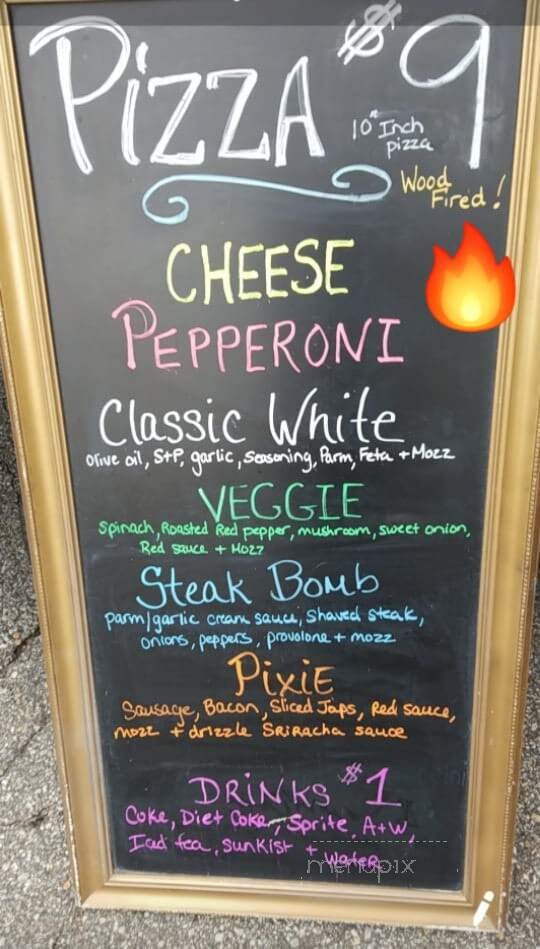 PizzA $9
10" Inch
pizza
Wood
Fired!
CHEESE
PEPPERONI
Classic White
Olive oil, S+P, garlic, seasoning, Parm, Feta + Mozz
VEGGIE
Spinach, Roasted Red pepper, mushroom, sweet onion,
Red sauce + Mozz
Steak Bomb
parm/garlic cream sauce, Shaved steak,
onions, peppers, provolone + mozz
PixiE
Sausage, Bacon, Sliced Japs, Red sauce,
mozz + drizzle SRiRacha sauce
DRiNKS $1
Coke, Diet Coke, Sprite, A+W,
Iced tea, sunkist + Water
menupix